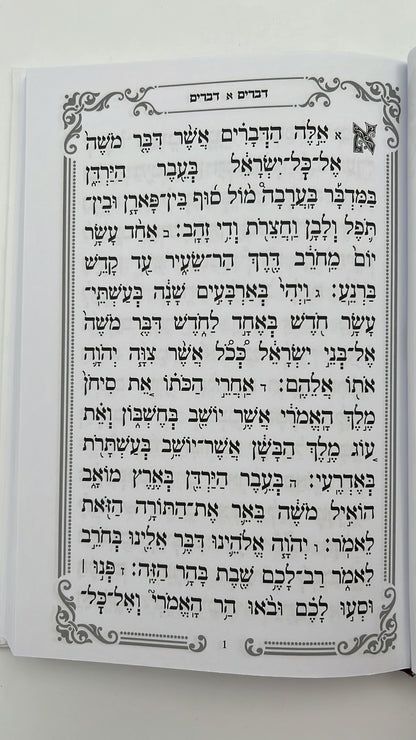 דברים א דברים
א אֵ֣לֶּה הַדְּבָרִ֗ים אֲשֶׁ֨ר דִּבֶּ֤ר מֹשֶׁה֙
אֶל־כׇּל־יִשְׂרָאֵ֔ל בְּעֵ֖בֶר הַיַּרְדֵּ֑ן
בַּמִּדְבָּ֡ר בָּֽעֲרָבָה֩ מ֨וֹל ס֜וּף בֵּֽין־פָּארָ֧ן וּבֵֽין־
תֹּ֛פֶל וְלָבָ֥ן וַֽחֲצֵרֹ֖ת וְדִ֥י זָהָֽב: ב אַחַ֨ד עָשָׂ֥ר
יוֹם֙ מֵֽחֹרֵ֔ב דֶּ֖רֶךְ הַר־שֵׂעִ֑יר עַ֖ד קָדֵ֥שׁ
בַּרְנֵֽעַ: ג וַֽיְהִי֙ בְּאַרְבָּעִ֣ים שָׁנָ֔ה בְּעַשְׁתֵּֽי־
עָשָׂ֥ר חֹ֖דֶשׁ בְּאֶחָ֣ד לַחֹ֑דֶשׁ דִּבֶּ֤ר מֹשֶׁה֙
אֶל־בְּנֵ֣י יִשְׂרָאֵ֔ל כְּ֠כֹ֠ל אֲשֶׁ֨ר צִוָּ֧ה יְהוָֹ֛ה
אֹת֖וֹ אֲלֵהֶֽם: ד אַֽחֲרֵ֣י הַכֹּת֗וֹ אֵ֚ת סִיחֹן֙
מֶ֣לֶךְ הָֽאֱמֹרִ֔י אֲשֶׁ֥ר יוֹשֵׁ֖ב בְּחֶשְׁבּ֑וֹן וְאֵ֗ת
ע֚וֹג מֶ֣לֶךְ הַבָּשָׁ֔ן אֲשֶׁר־יוֹשֵׁ֥ב בְּעַשְׁתָּרֹ֖ת
בְּאֶדְרֶֽעִי: ה בְּעֵ֥בֶר הַיַּרְדֵּ֖ן בְּאֶ֣רֶץ מוֹאָ֑ב
הוֹאִ֣יל מֹשֶׁ֔ה בֵּאֵ֛ר אֶת־הַתּוֹרָ֥ה הַזֹּ֖את
לֵאמֹֽר: ו יְהוָֹ֧ה אֱלֹהֵ֛ינוּ דִּבֶּ֥ר אֵלֵ֖ינוּ בְּחֹרֵ֣ב
לֵאמֹ֑ר רַב־לָכֶ֥ם שֶׁ֖בֶת בָּהָ֥ר הַזֶּֽה: ז פְּנ֣וּ ׀
וּסְע֣וּ לָכֶ֗ם וּבֹ֨אוּ הַ֥ר הָֽאֱמֹרִי֮ וְאֶל־כׇּל־
1